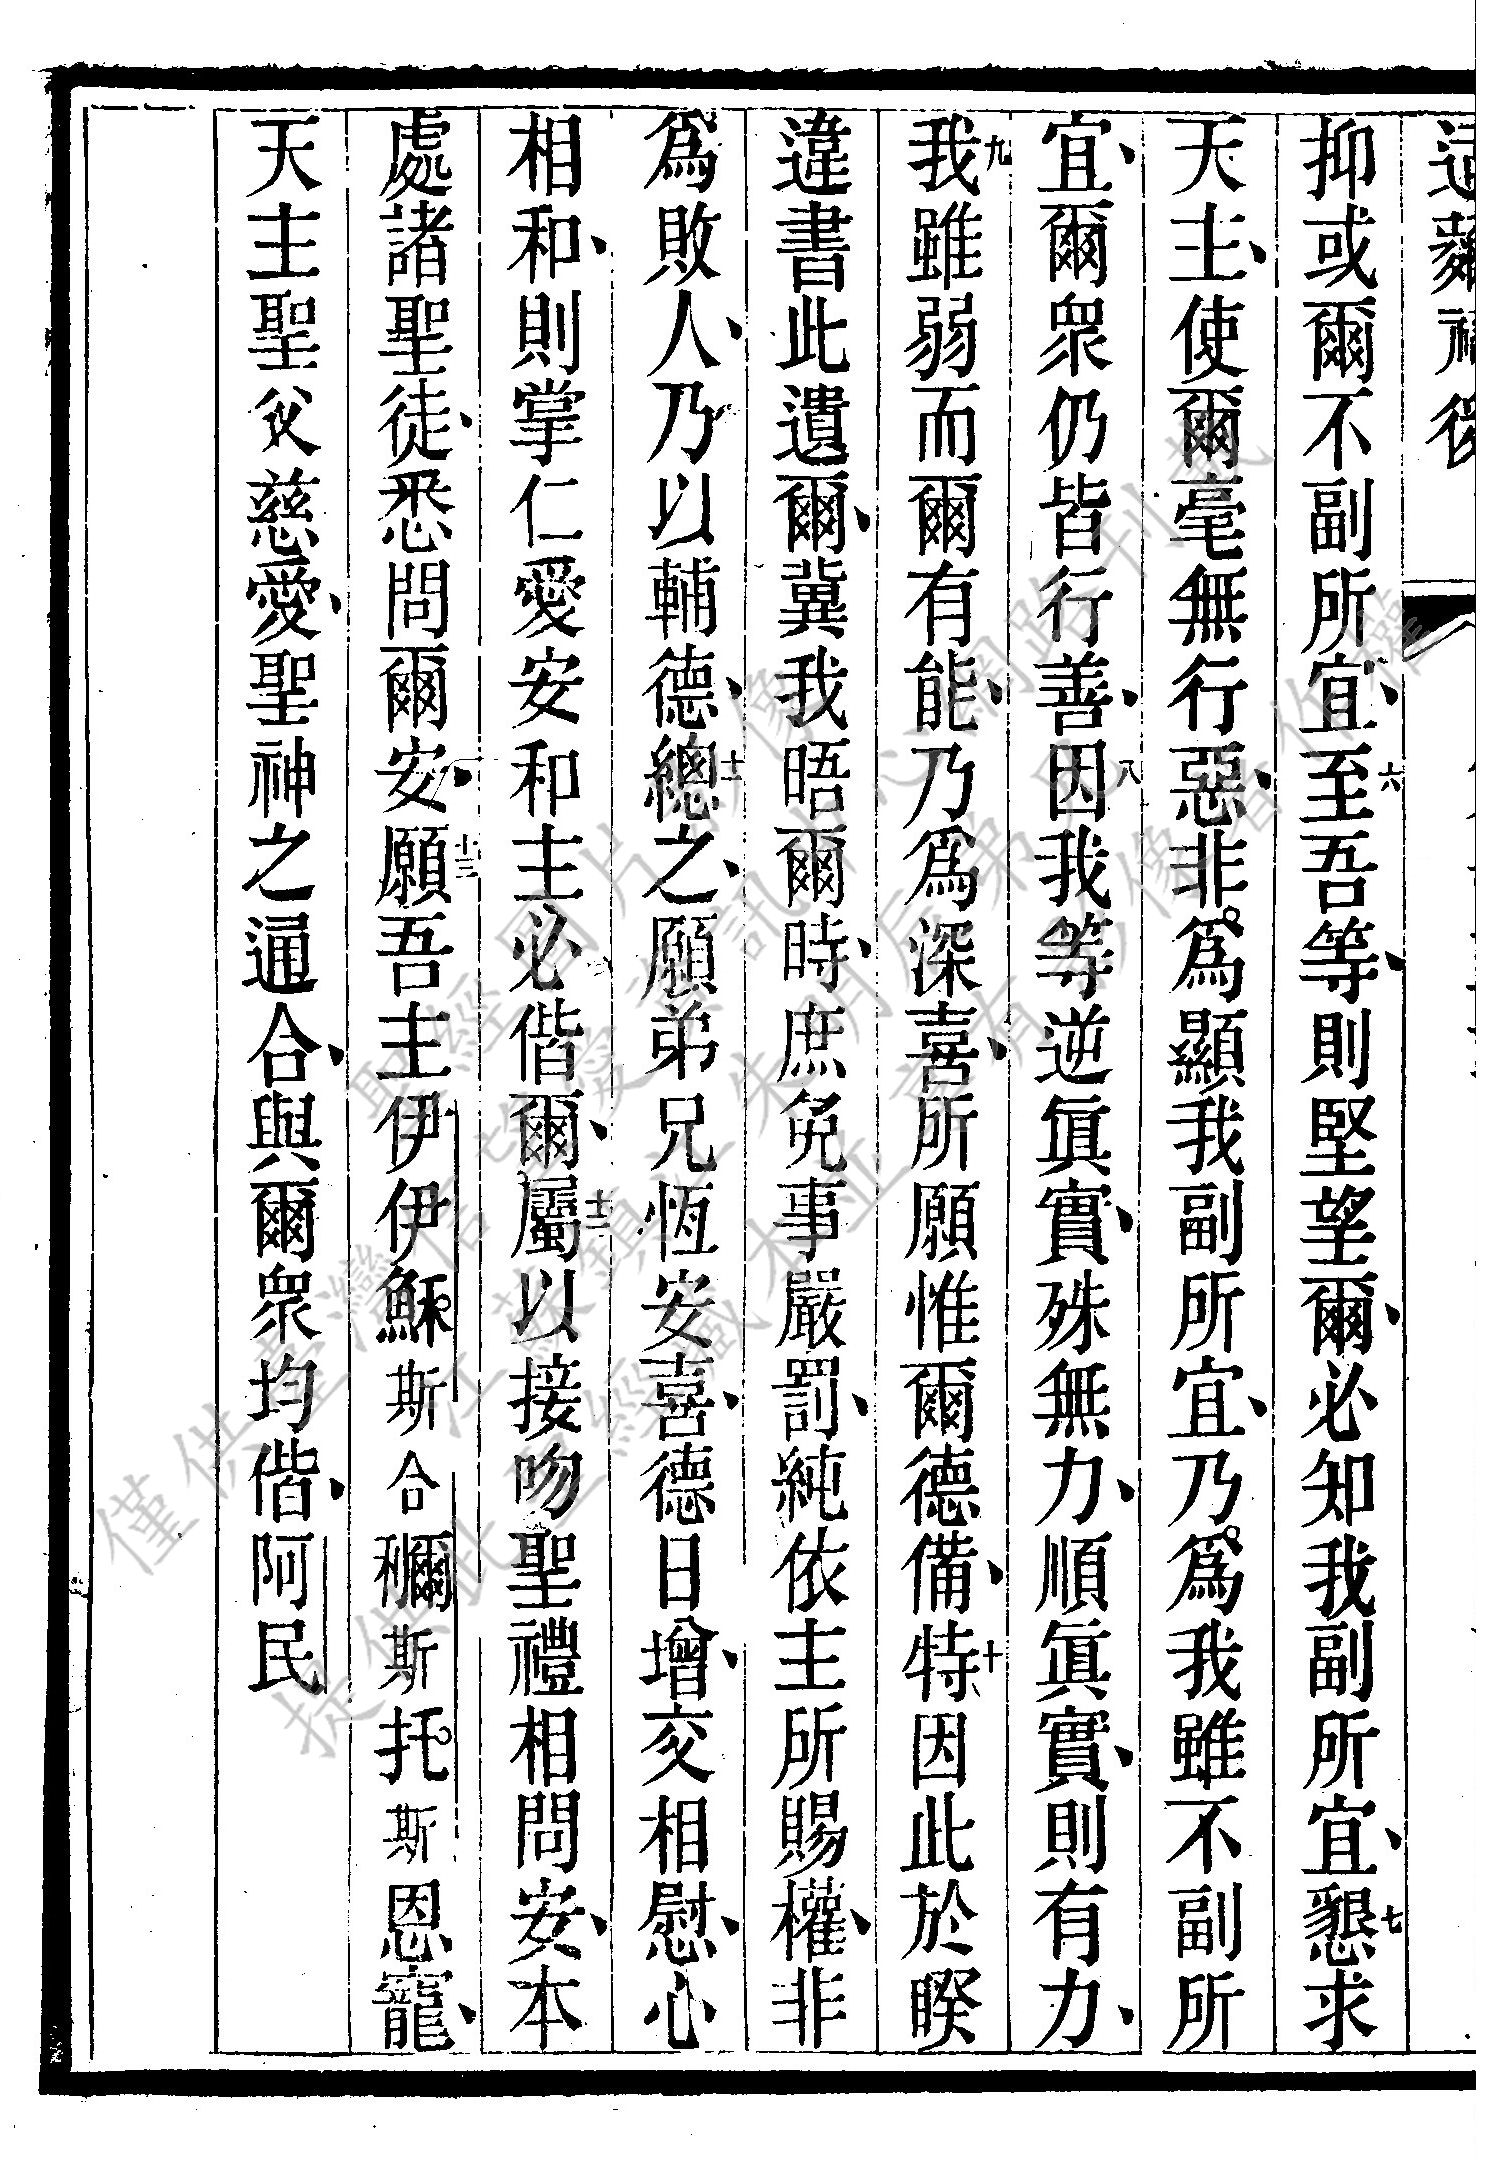 抑或爾不副所宜、六至吾等、則堅望爾、必知我副所宜、七懇求
天主、使爾毫無行惡、非爲顯我副所宜、乃爲我雖不副所
宜、爾衆仍皆行善、八因我等逆眞實、殊無力、順眞實、則有力、
九我雖弱而爾有能、乃爲深喜、所願惟爾德備、十特因此於睽
違書此遺爾、冀我晤爾時、庶免事嚴罰、純依主所賜權、非
爲敗人、乃以輔德、十一總之、願弟兄恆安喜、德日增、交相慰、心
相和、則掌仁愛安和主必偕爾、十二屬以接吻聖禮相問安、本
處諸聖徒、悉問爾安、十三願吾主伊伊穌斯合穪斯托斯恩寵、
天主聖父慈愛、聖神之通合、與爾衆均偕、阿民
僅供臺灣信望愛資訊中心網路刊載
提供此聖經藏本並享有影像著作權